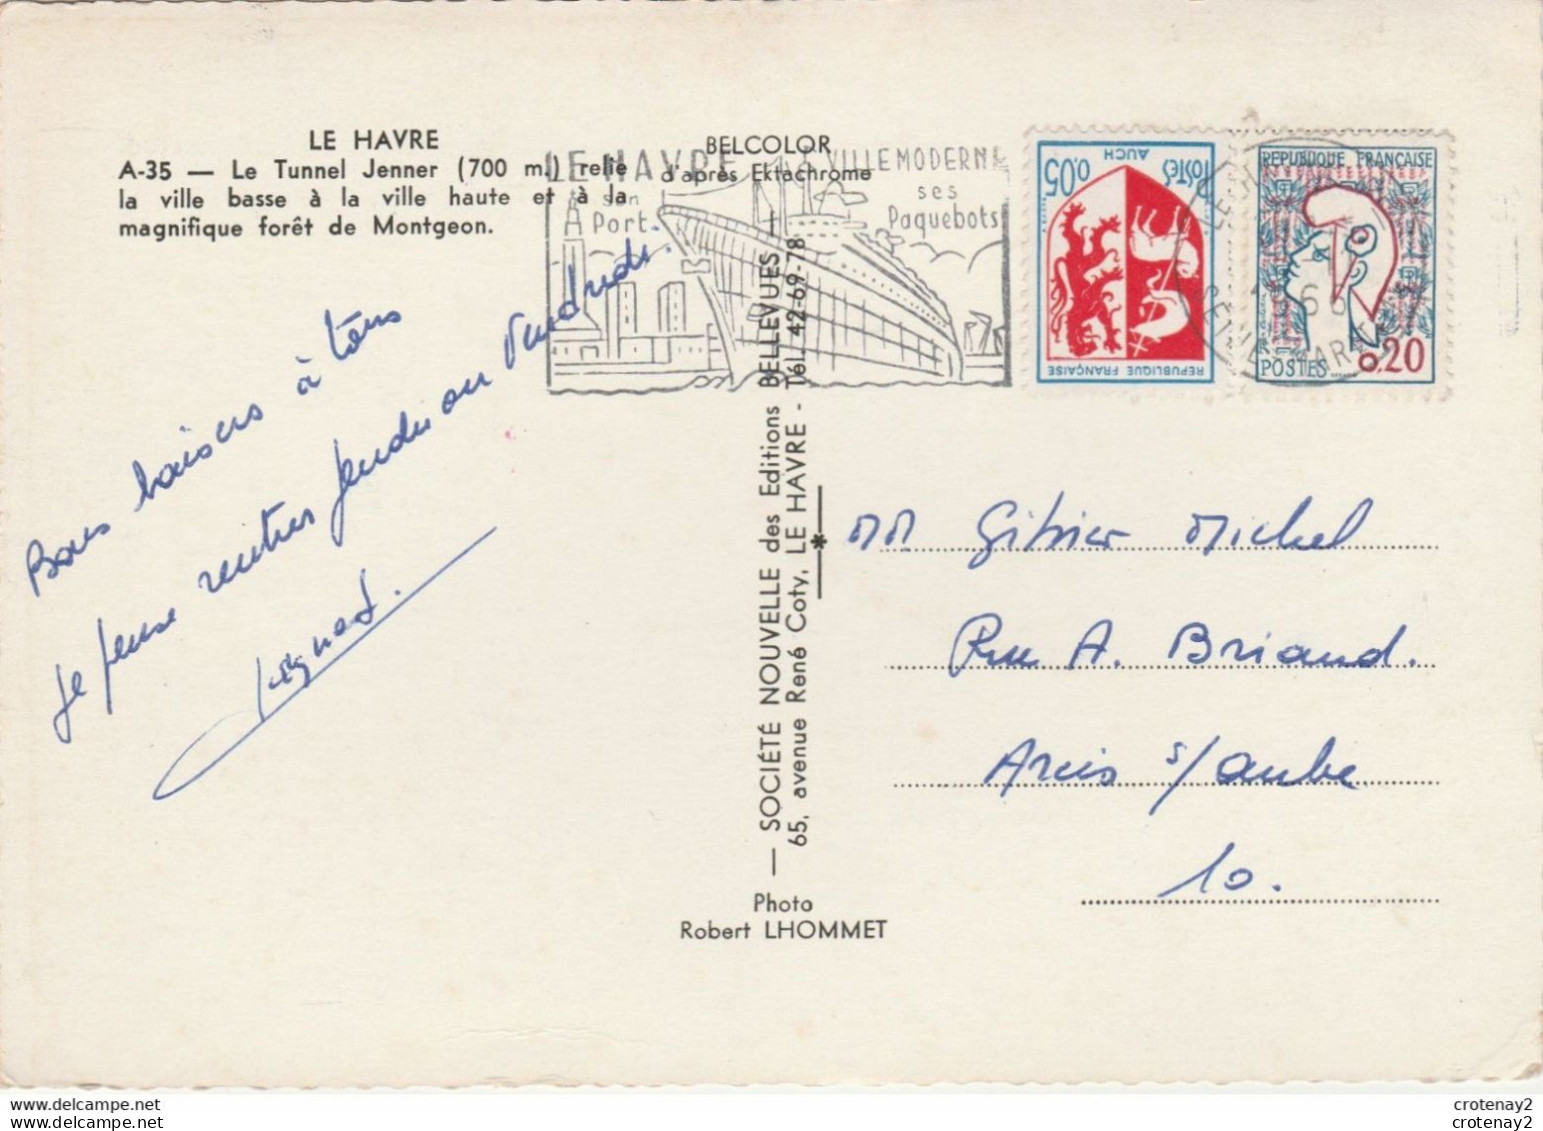 LE HAVRE
A-35 — Le Tunnel Jenner (700 m.) relie
la ville basse à la ville haute et à la
magnifique forêt de Montgeon.
Bons baisers à tous
Je pense rentrer jeudi ou vendredi.
BELCOLOR
d'après Ektachrome
LE HAVRE
son
Port
VILLE MODERNE
ses
Paquebots
— SOCIÉTÉ NOUVELLE des Editions BELLEVUES —
65, avenue René Coty, LE HAVRE - Tél. 42-69-78
Photo
Robert LHOMMET
0.05
POSTES
AUCH
REPUBLIQUE FRANÇAISE
REPUBLIQUE FRANÇAISE
POSTES
0.20
Michel
Rue A. Briand.
Arcis s/aube
10.
crotenay2
crotenay2